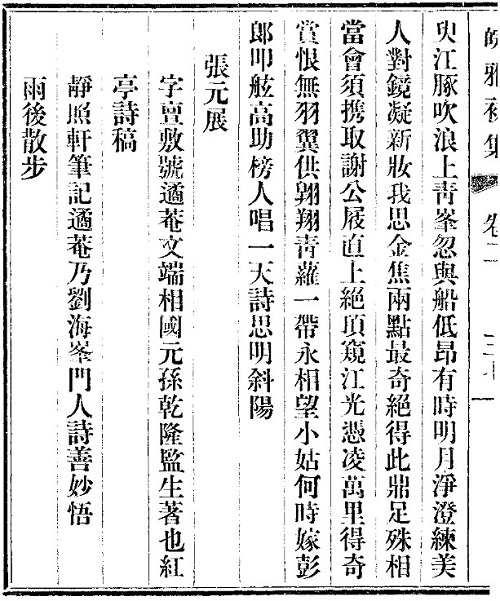 皖雅初集 卷二
臾江豚吹浪上青峯忽與船低昂有時明月淨澄練美
人對鏡凝新妝我思金焦兩點最奇絕得此鼎足殊相
當會須携取謝公屐直上絕頂窺江光憑凌萬里得奇
賞恨無羽翼供翺翔青蘿一帶永相望小姑何時嫁彭
郎叩舷高助榜人唱一天詩思明斜陽
張元展
字亶敷號遹菴文端相國元孫乾隆監生著也紅
亭詩稿
靜照軒筆記遹菴乃劉海峯門人詩善妙悟
雨後散步